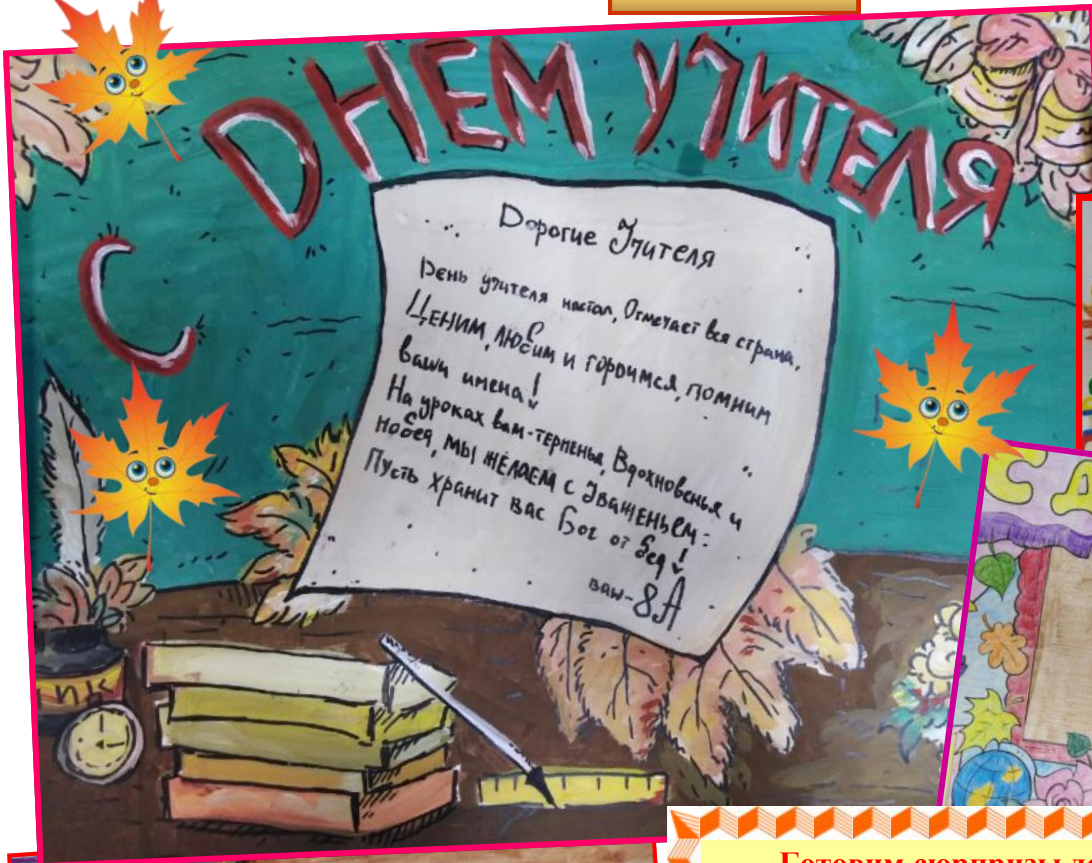 С ДНЕМ УЧИТЕЛЯ
Дорогие Учителя
День учителя настал, Отмечает вся страна,
Ценим, любим и гордимся, помним
ваши имена!
На уроках вам-терпенья, Вдохновенья и
побед, мы желаем с Уваженьем:
Пусть хранит вас Бог от бед!
ваш-8.А
С Д
Готовим сюрпризы